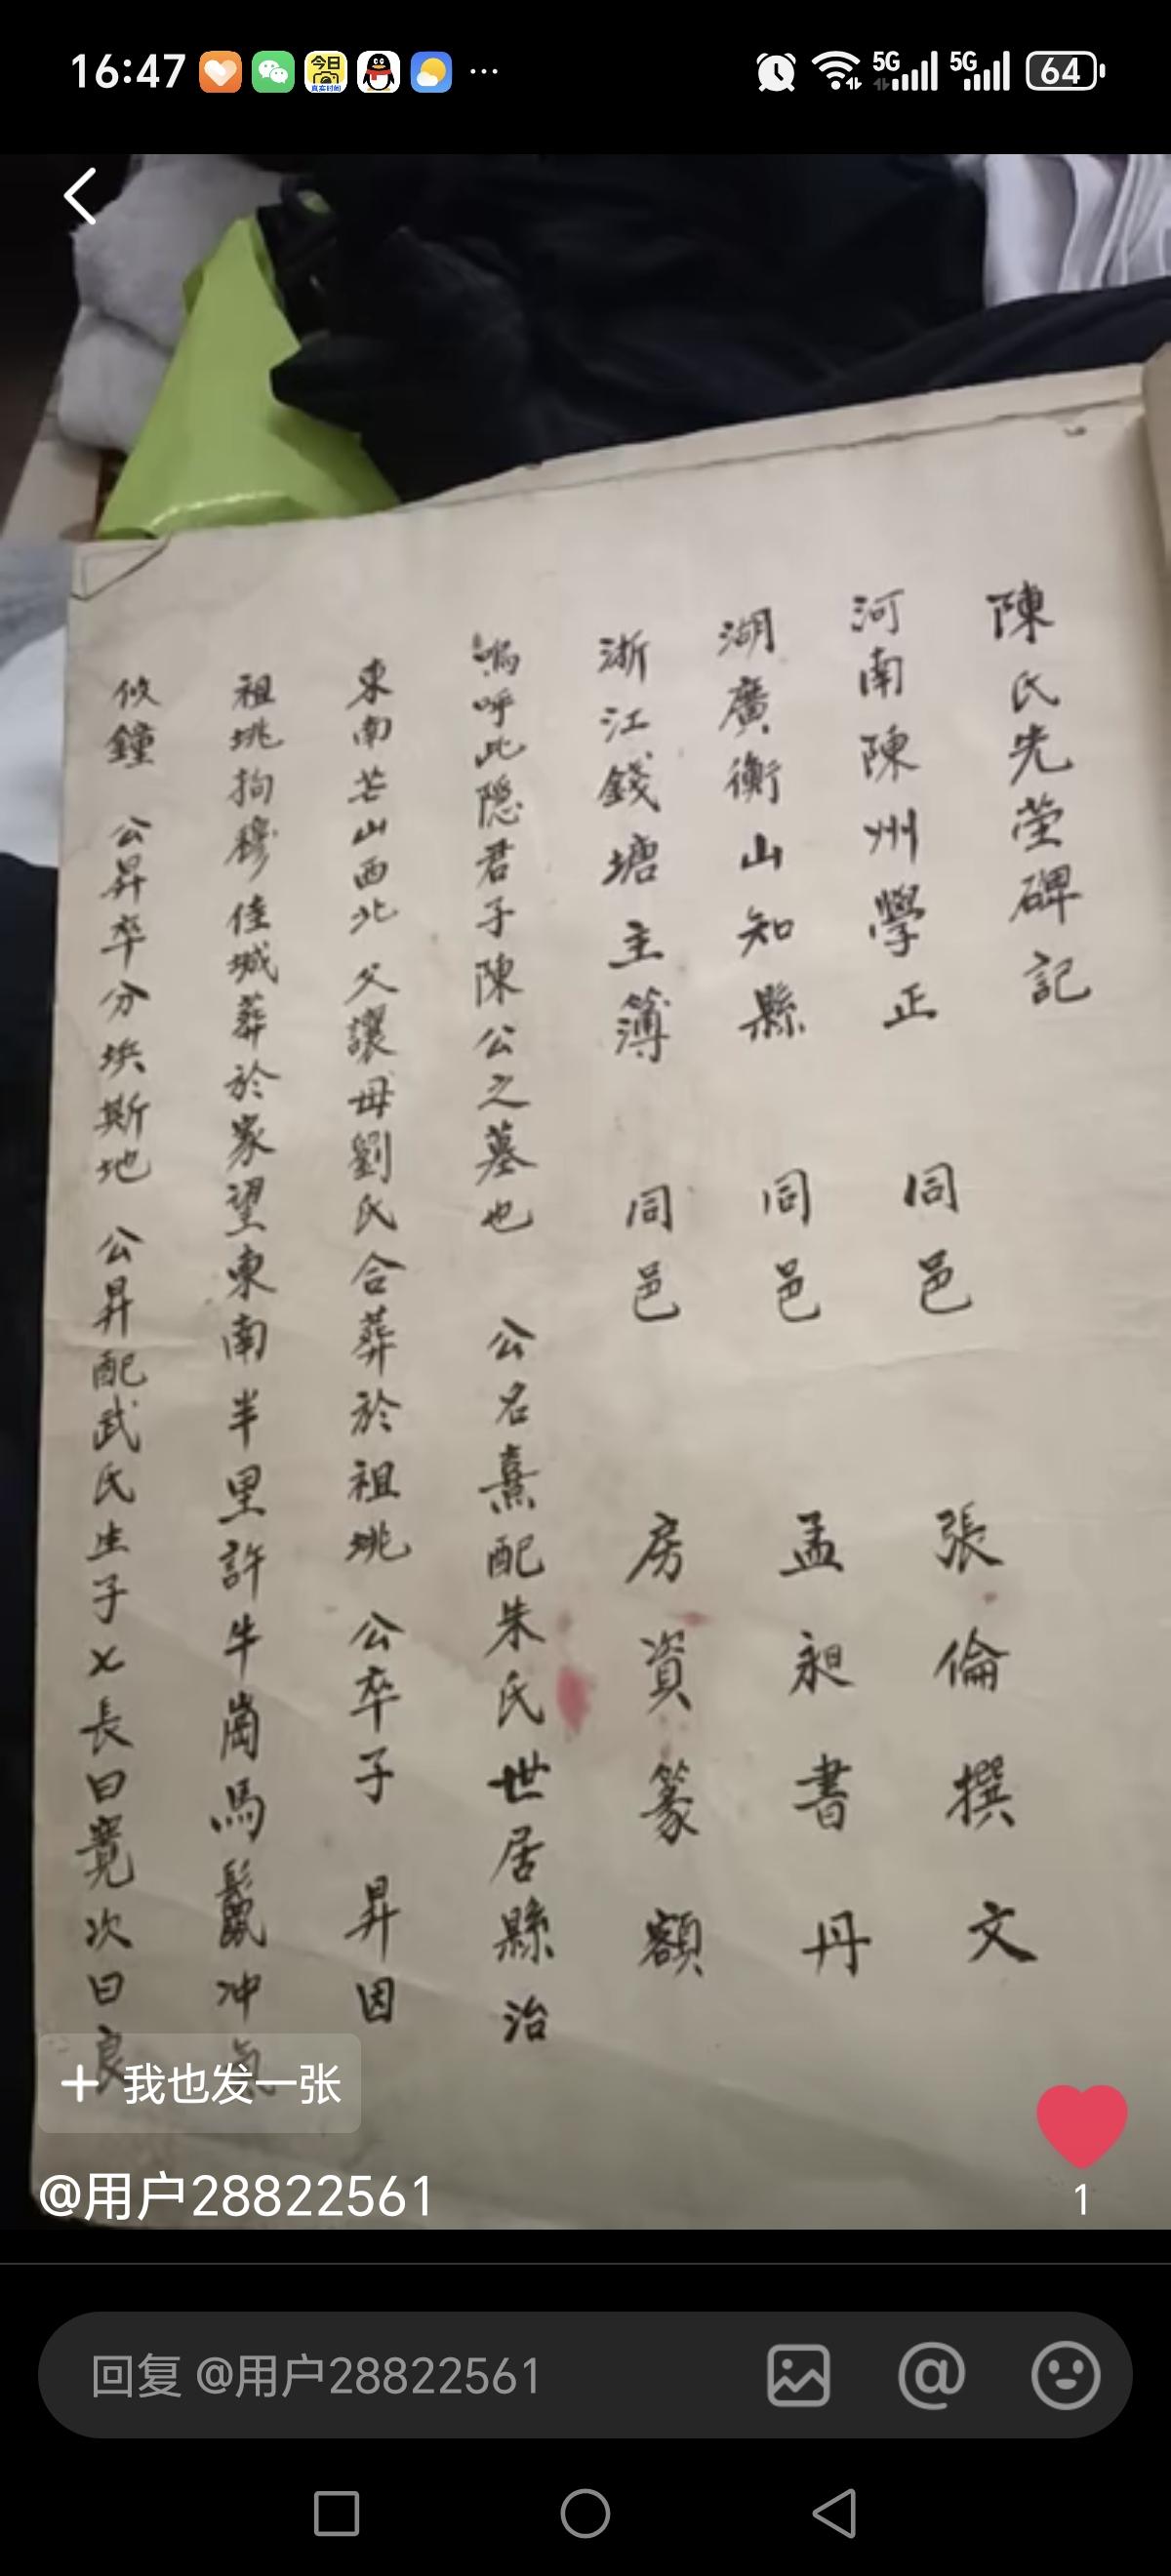 16:47
今日
真实时间
5G
5G
64
陳氏先塋碑記
河南陳州學正 同邑 張倫撰文
湖廣衡山知縣 同邑 孟昶書丹
浙江錢塘主簿 同邑 房資篆額
嗚呼此隠君子陳公之墓也 公名熹配朱氏世居縣治
東南芒山西北 父讓母劉氏合葬於祖垗 公卒子 昇因
祖垗拘穆佳城葬於家望東南半里許牛崗馬鬣冲氣
攸鐘 公昇卒分埉斯地 公昇配武氏生子乂長曰寬次曰良
+ 我也发一张
@用户28822561
1
回复 @用户28822561